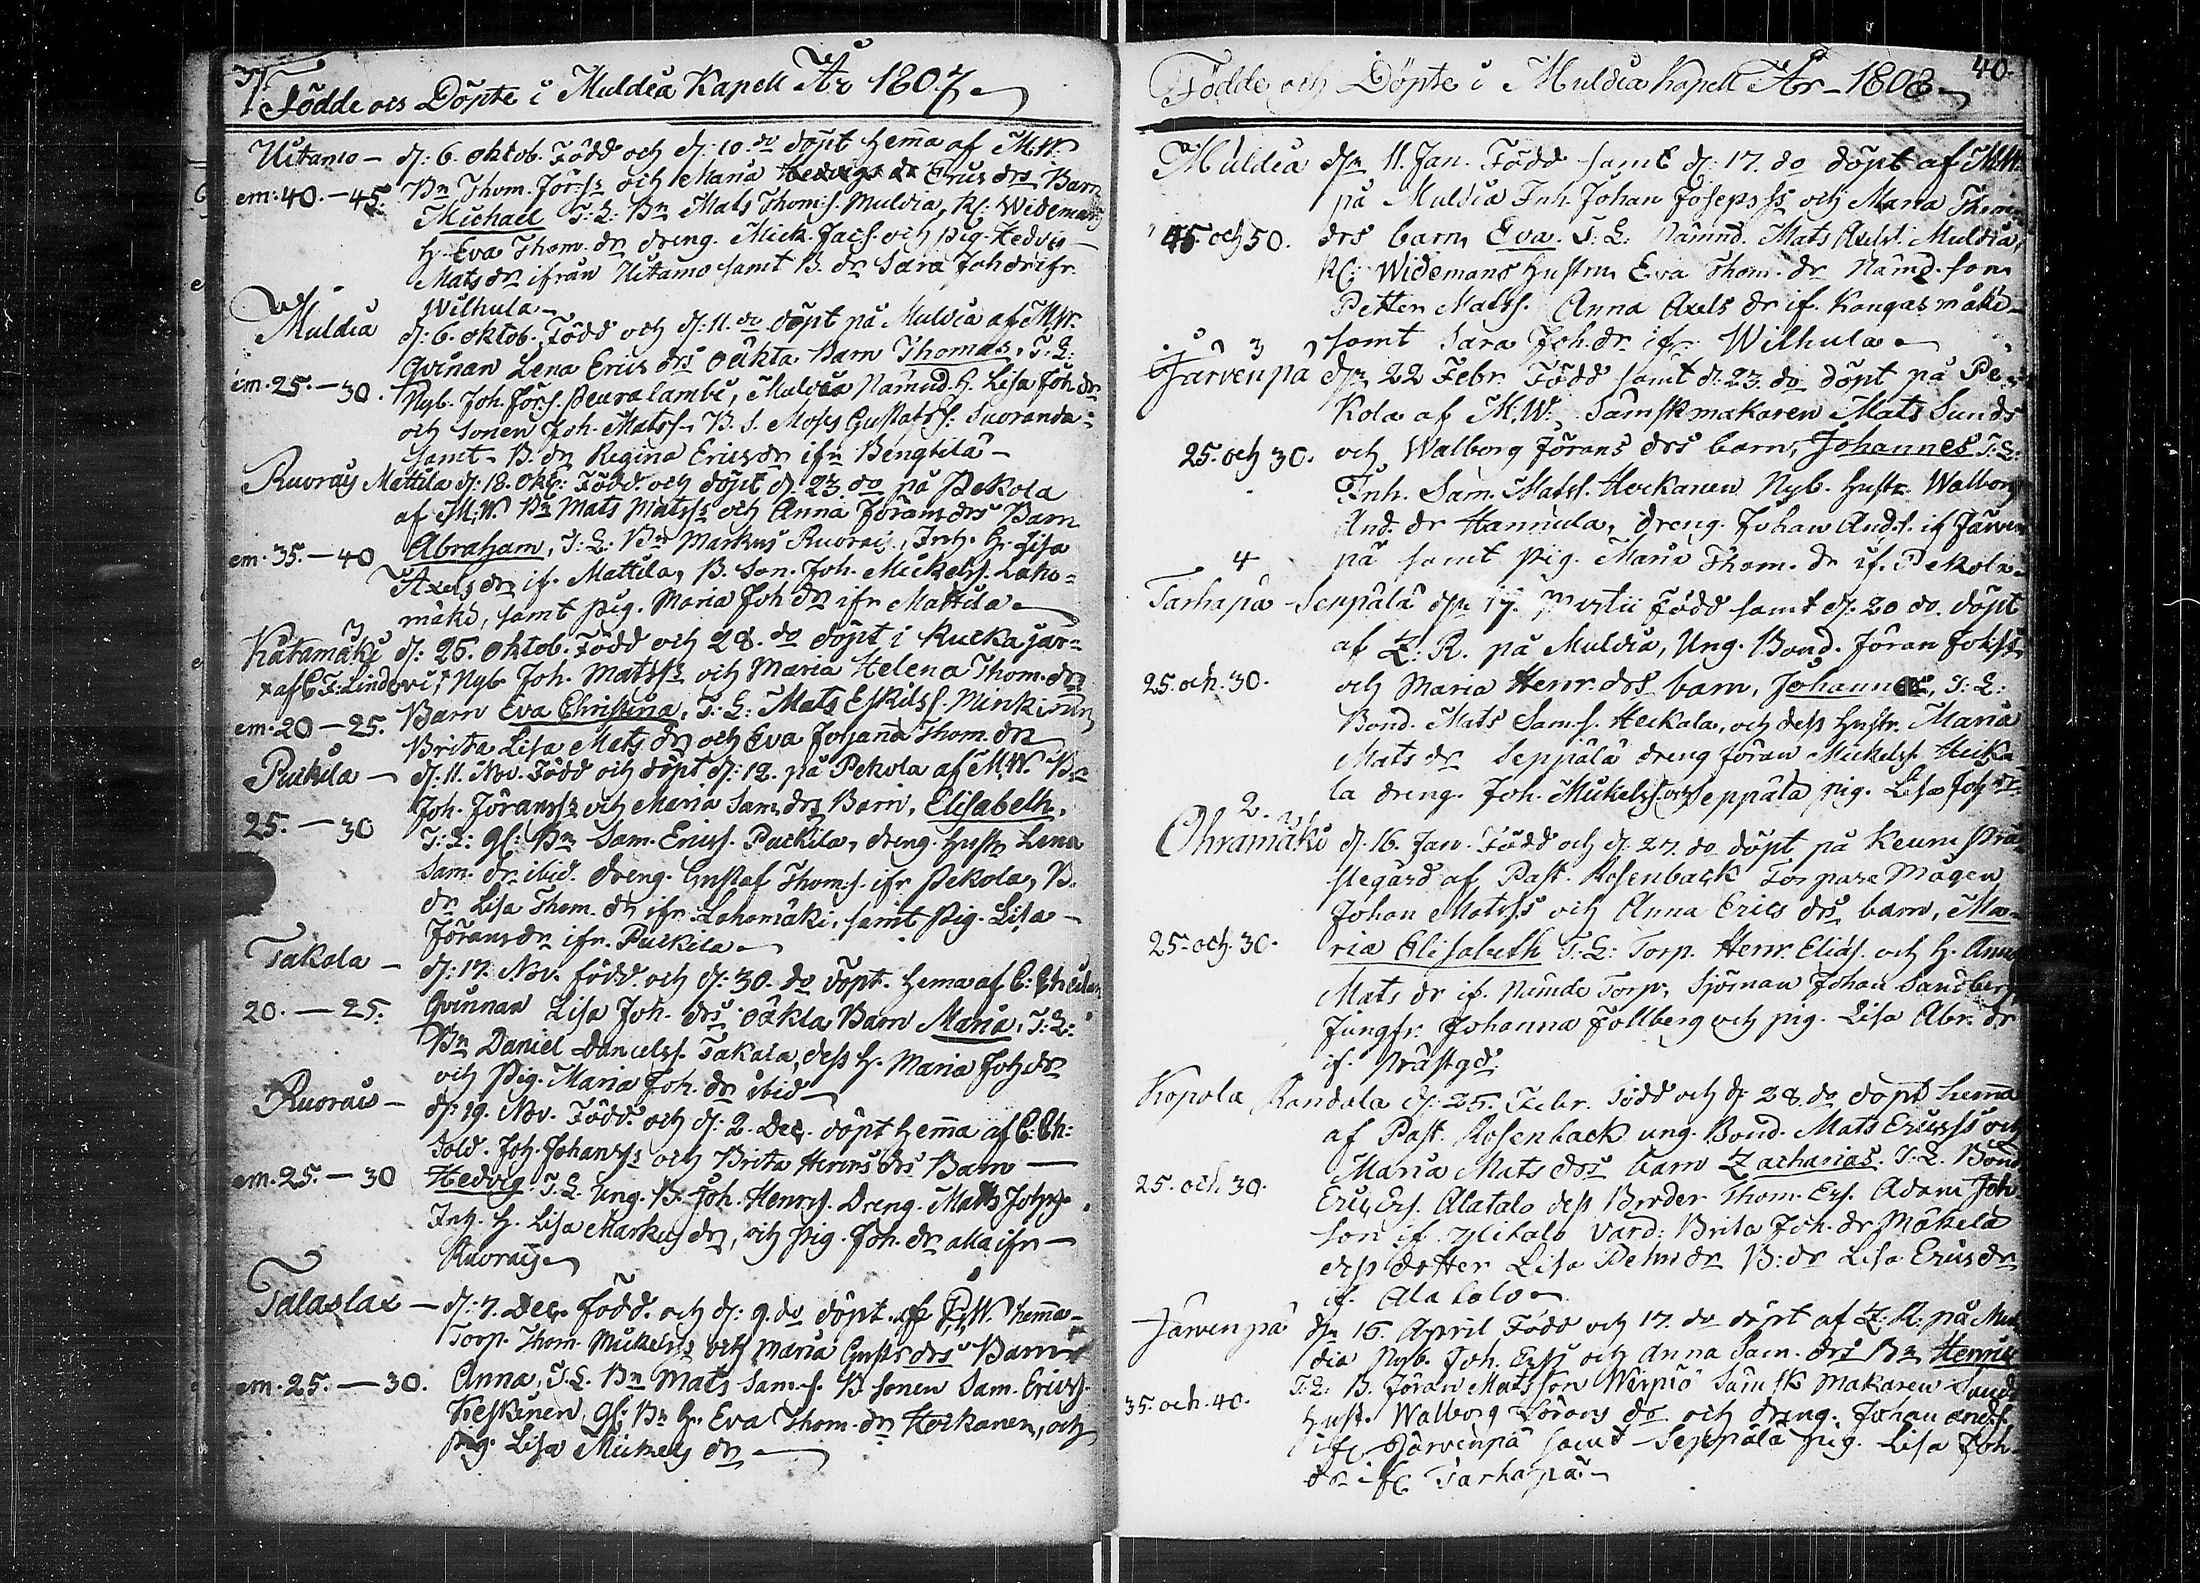 Födde och Döpte i Muldia Kapell År 1807
Uitamo – d: 6. Oktob. Född och d: 10 do döpt hemma af M.W.
em: 40. – 45. Bn Thom. Jör:ss och Maria Erics drs Barn
Michael T: L: Bn Mats Thom:s. Muldia, Kl: Widemans
h. Eva Thom. dr dreng. Mick. Jacs. och pig. Hedvig
Mats dr ifrån Uitamo samt B. dr Sara Joh dr ifr.
Wilhula
Muldia d: 6. Oktob. Född och d: 11. do döpt på Muldia af M.W.
Qvinan Lena Erics drs oäkta Barn Thomas, T. L:
em. 25. – 30. Nyb. Joh. Jörs. Peuralambi, Muldia Nämnd. h. Lisa Joh. dr
och sonen Joh. Matss. B. S. Moses Gustafss: Suoranda
samt B. dr Regina Erics dr ifr Bengtilä –
Ruorais Mattila d: 18. Okt: Född och döpt d. 23. do på Pekola
af M.W. Bn Mats Matss och Anna Jörans drs Barn
em. 35. – 40 Abraham, T: L: Bn Markus Ruorais, Inh. h. Lisa
Axels dr if. Mattila, B. Son. Joh. Mickelss. Laho=
mäki, samt pig. Maria Joh dr ifr Mattila
Kätamäki d: 25. Oktob. Född och 28. do döpt i Kuckajär=
x af C. F: Lindqvi, x Nyb. Joh. Matss och Maria Helena Thom. drs
em. 20 – 25. Barn Eva Christina, T: L: Mats Eskilss. Minkinen,
Brita Lisa Mats dr och Eva Johanna Thom. dr
Puikila – d: 11. Nov. Född och döpt d: 12. på Pekola af M.W. Bn
Joh. Jöranss och Maria Sam. drs Barn, Elisabeth,
25. – 30 T: L: Gl: Bn Sam. Ericss. Puikila, dreng. Hustr Lena
Sam. dr ibid. dreng. Gustaf Thom:s. ifr Pekola, B.
dr Lisa Thom. dr ifr. Lahomäki, samt Pig. Lisa –
Jörans dr ifr. Puikila
Takala – d: 17. Nov. född och d: 30. do döpt hema af C:
20. – 25. Qvinnan Lisa Joh. drs oäkta Barn Maria, T: L:
Bn Daniel Danielss. Takala, dess h. Maria Joh dr
och Pig. Maria Joh. dr ibid
Ruorais – d: 19. Nov. Född och d: 2. Dec. döpt hemma af C: Ch:
Sold. Joh. Johanss och Brita Henrs drs Barn –
em. 25. – 30 Hedvig. T. L. Ung. B. Joh. Henrss. Dreng. Mats Johss
Inh. h. Lisa Markus dr, och pig. Joh. dr alla ifr –
Ruorais
Talaslax – d: 7. Dec. född och d: 9. do döpt af P.W. hemma –
Torp. Thom. Mickelss och Maria Gusts drs Barn
em. 25. – 30. Anna, T. L. Bn Mats Sam:s. B. sonen Sam. Ericss.
Keskinen, Gl: Bn h. Eva Thom. dr Heckanen, och
pig. Lisa Mickels dr
40.
Födde och Döpte i Muldia Kapell År – 1808
Muldia dn 11. Jan. Född samt d: 17. do döpt af M.W.
på Muldia Inh. Johan Josepsss och Maria Thom
45. och 50. drs barn, Eva. T: L. Nämnd. Mats Axelss. Muldia,
Kl: Widemans Hustru Eva Thom. dr Nämd. son
Petter Matss. Anna Axels dr if. Kangasmäki
samt Sara Joh. dr ifr. Wilhula
3
Järvenpä dn 22 Febr. Född samt d. 23. do döpt på Pe=
kola af M.W. Sämskmakaren Mats Sunds
25. och 30. och Walborg Jörans drs barn, Johannes T: L:
Inh. Sam. Matss. Heckanen Nyb. Hustr. Walborg
And. dr Hannula, dreng. Johan Ands. if Järven
4 pä samt pig. Maria Thom. dr if. Pekola
Tarhapä Seppälä dn 17. Martii Född samt d: 20 do. döpt
af Z: R. på Muldia, Ung. Bond. Jöran Johss
25. och. 30. och Maria Henr. drs barn, Johannes, T: L:
Bond. Mats Sam:s. Heckala, och dess hustr. Maria
Mats dr Seppälä dreng Jöran Mickelss. Heika
la dreng. Joh. Mickelss och Seppälä pig. Lisa Joh dr.
2.
Ohramäki d. 16. Jan. Född och d. 27. do döpt på Keuru Prä
stegård af Past. Rosenback Torpare Mågen
Johan Matsss och Anna Erics drs barn, Ma=
25. och. 30. ria Elisabeth T: L: Torp. Henr. Eliæs. och h. Anna
Mats dr if. Nämde Torp, Sjöman Johan Sandberg
Jungfr. Johanna Follberg och pig. Lisa Abr. dr
if. Prästgd.
Kopola Randala d: 25. Febr. Född och d. 28. do döpt hemma
af Past. Rosenback ung. Bond. Mats Ericsss och
25. och 30. Maria Mats drs barn Zacharias. T. L. Bond
Eric Ers. Alatalo dess Broder Thom. Ers. Adam Joh
son if Ylitalo Värd: Brita Joh. dr Mäkelä
dess dotter Lisa Petrs dr B: dr Lisa Erics dr
if. Alatalo
Järvenpä dn 15. April Född och 17. do döpt af Z: R: på Mul
dia Nyb. Joh. Erss och Anna Sam. drs Bn Henric
35. och. 40. T. L. B. Jöran Matsson Wärpiö Sämskmakaren Sunds
hust. Walborg Jörans dr och dreng. Johan Ands.
ifr Järvenpä samt Seppälä pig. Lisa Joh
dr ifr Tarhapä